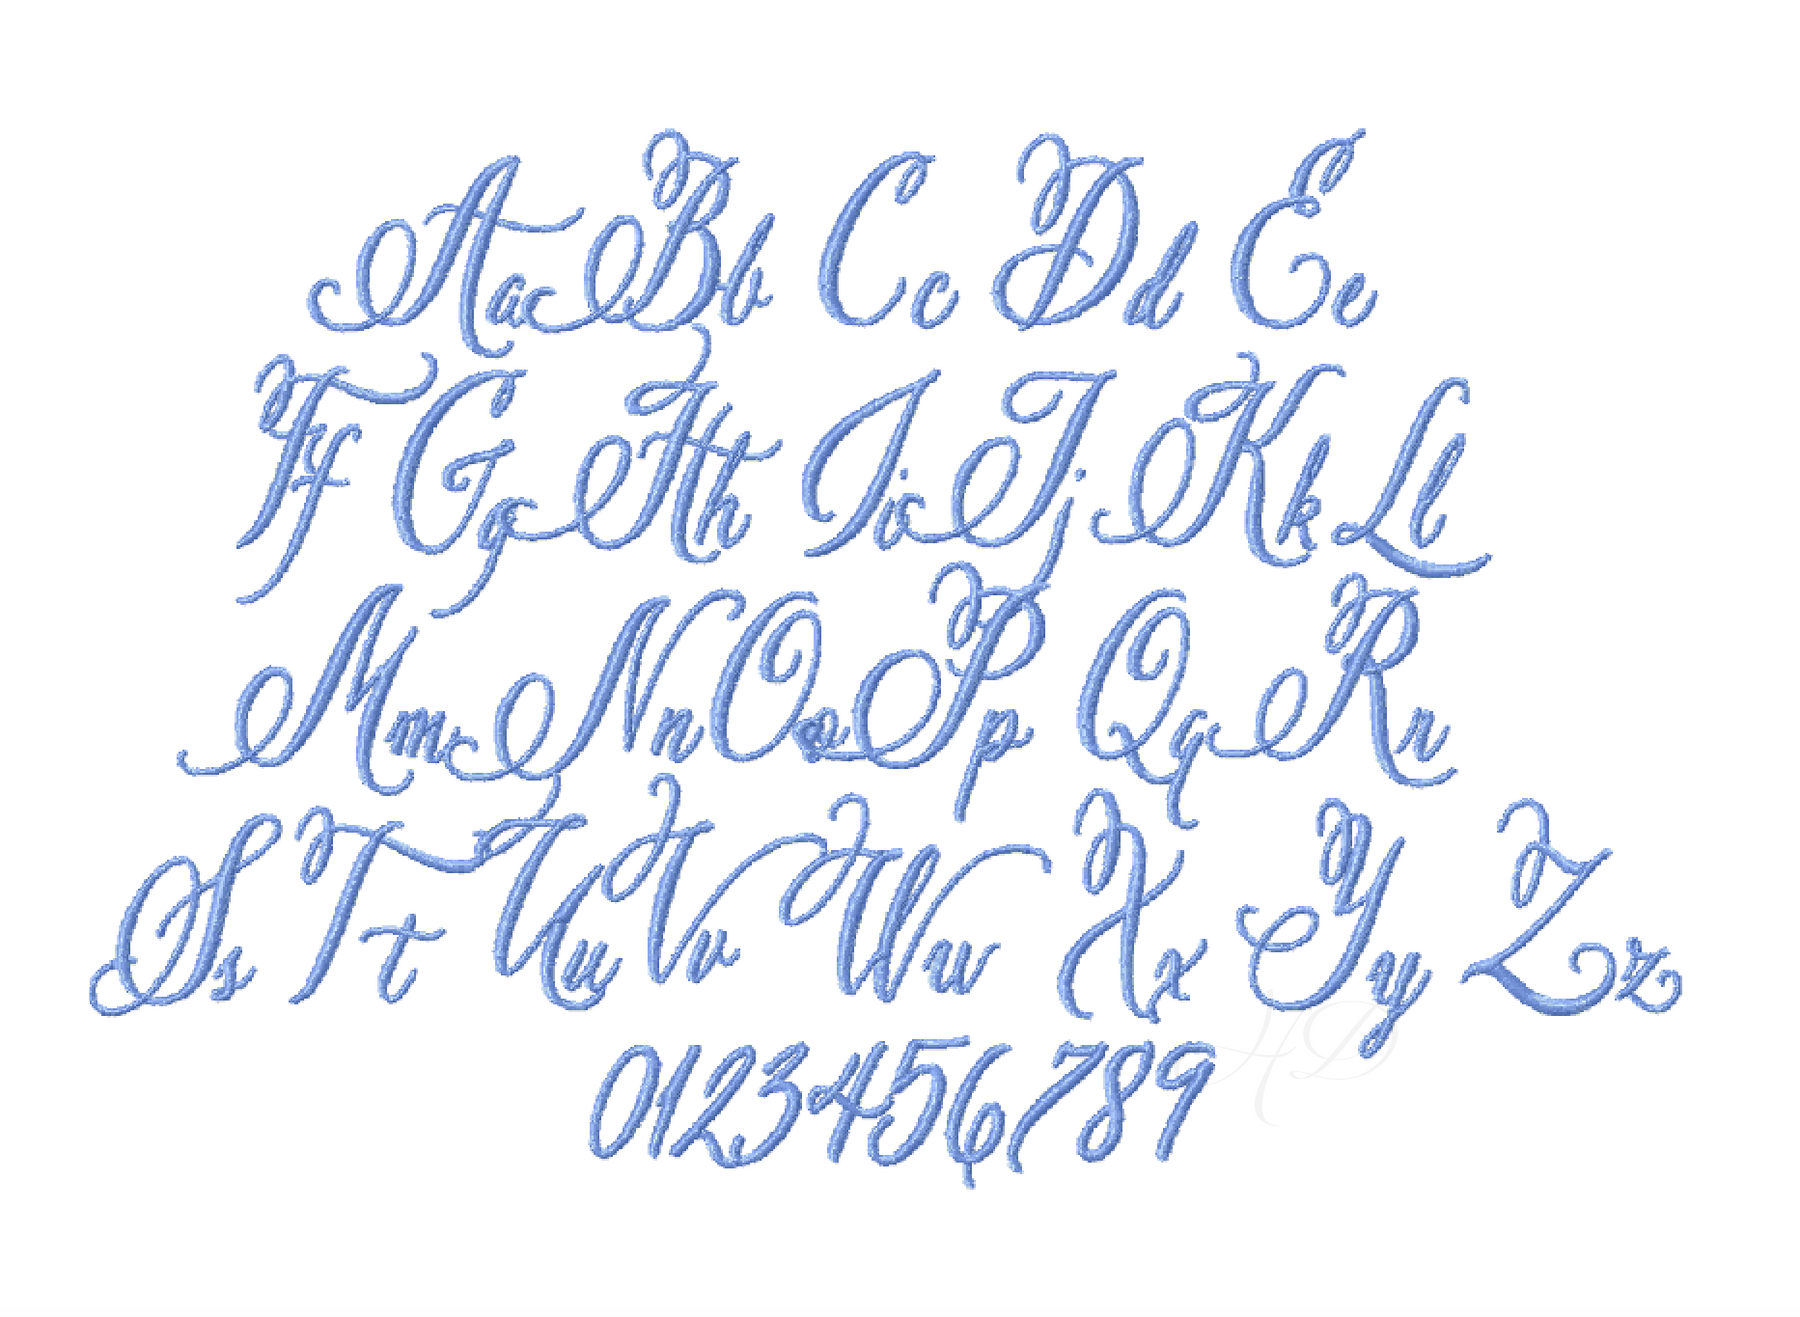 Aa Bb Cc Dd Ee
Ff Gg Hh Ii Jj Kk Ll
Mm Nn Oo Pp Qq Rr
Ss Tt Uu Vv Ww Xx Yy Zz
0123456789
HD